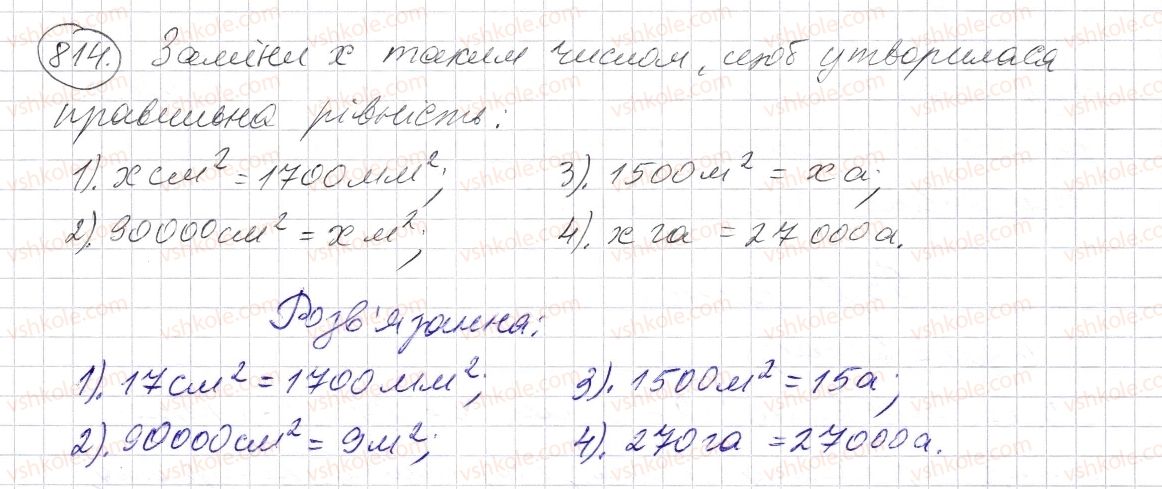 814. Заміни x таким числом, щоб утворилася
правильна рівність:
1). x см² = 1700 мм²;
2). 90000 см² = x м²;
3). 1500 м² = x а;
4). x га = 27 000 а.
Розв'язання:
1). 17 см² = 1700 мм²;
2). 90000 см² = 9 м²;
3). 1500 м² = 15 а;
4). 270 га = 27000 а.